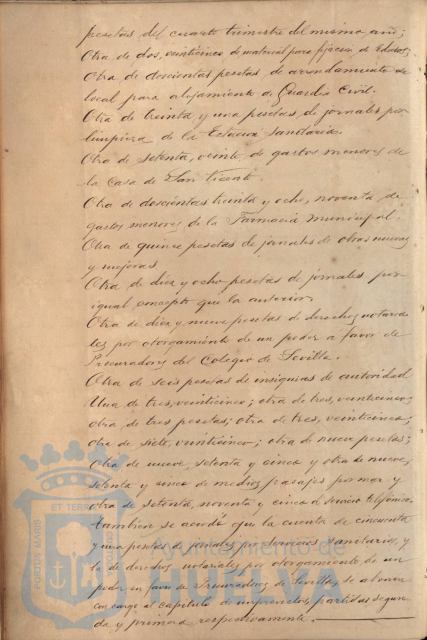 pesetas del cuarto trimestre del mismo año;
Otra de dos, veinticinco de material para fijación de Edictos;
Otra de doscientas pesetas de arrendamiento de
local para alojamiento de Guardia Civil.
Otra de treinta y una pesetas, de jornales por
limpieza de la Estación Sanitaria.
Otra de setenta, veinte, de gastos menores de
la Casa de San Vicente.
Otra de doscientas treinta y ocho, noventa, de
gastos menores de la Farmacia Municipal.
Otra de quince pesetas de jornales de obras nuevas
y mejoras.
Otra de diez y ocho pesetas de jornales por
igual concepto que la anterior.
Otra de diez y nueve pesetas de derechos notaria
les por otorgamiento de un poder a favor de
Procuradores del Colegio de Sevilla.
Otra de seis pesetas de insignias de autoridad
Una de tres, veinticinco; otra de tres, veinticinco;
otra, de tres pesetas; otra de tres, veinticinco;
otra de siete, veinticinco; otra de nueve pesetas;
otra de nueve, setenta y cinco y otra de nueve,
setenta y cinco de medios pasajes por mar y
otra de setenta, noventa y cinco de servicio telefónico.
Tambien se acordó que la cuenta de cincuenta
y una pesetas de jornales por servicios sanitarios, y
la de derechos notariales por otorgamiento de un
poder en favor de Procuradores de Sevilla, se abonen
con cargo al capítulo de imprevistos, partidas segun
da y primera respectivamente.
PORTUS MARIS ET TERRAE CUSTODIA
Ayuntamiento de
HUELVA